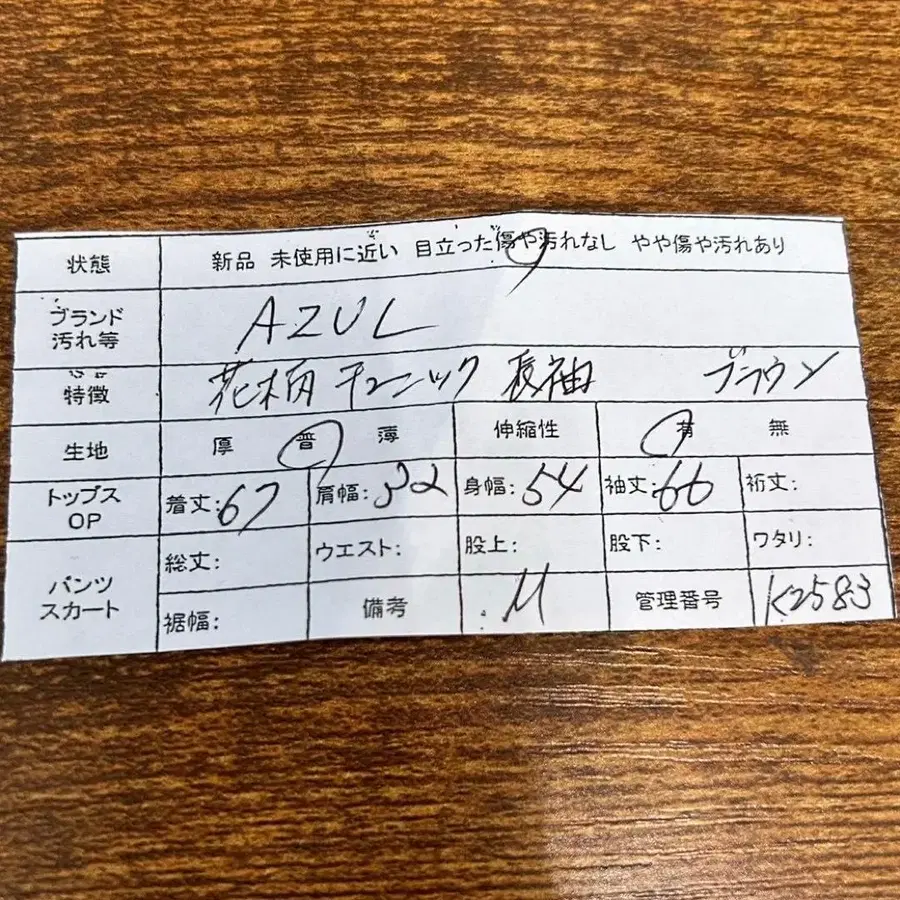 状態 新品 未使用に近い 目立った傷や汚れなし やや傷や汚れあり
ブランド
汚れ等 AZUL
特徴 花柄 チュニック 長袖 ブラウン
生地 厚 普 薄 伸縮性 有 無
トップス
OP 着丈:67 肩幅:32 身幅:54 袖丈:66 裄丈:
パンツ
スカート 総丈: ウエスト: 股上: 股下: ワタリ:
裾幅: 備考 M 管理番号 K2583